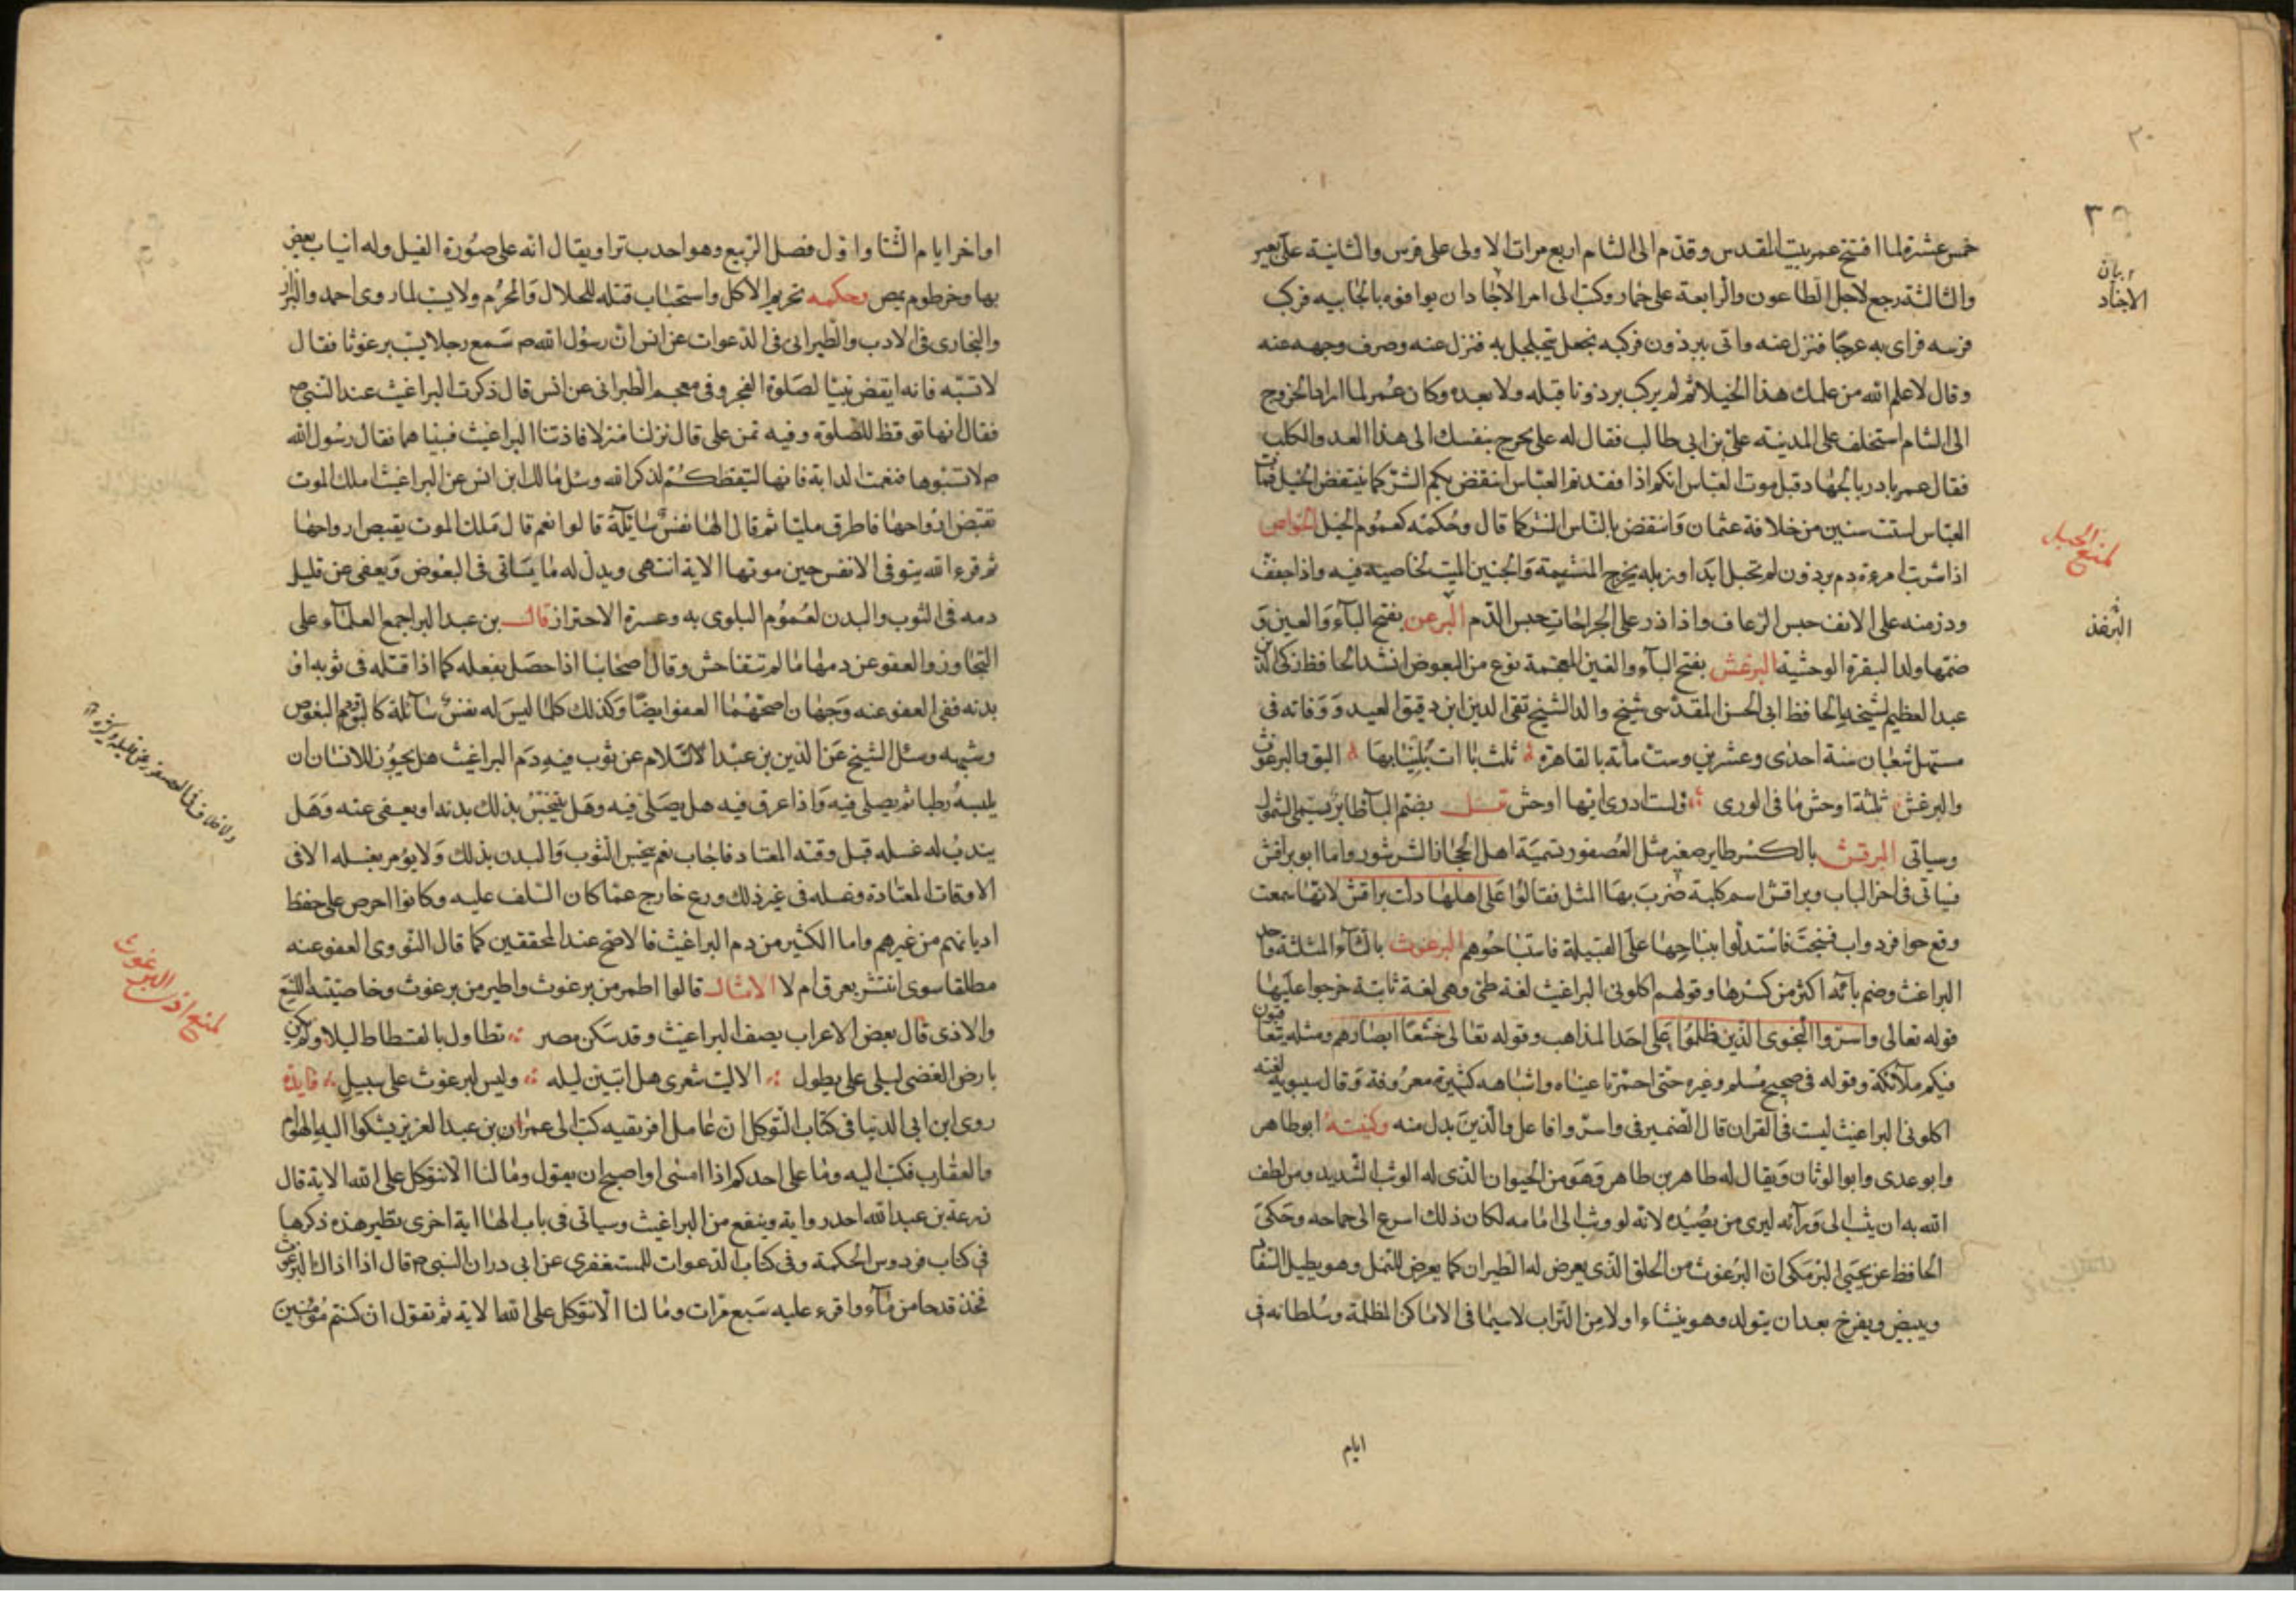 ٣٠
خمس عشرة لما افتتح عمر بيت المقدس وقدم الى الشام اربع مرات الاولى على فرس والثانية على بعير
والثالثة رجع لاجل الطاعون والرابعة على حمار وكتب الى امرا الاجناد ان يوافوه بالجابيه فركب
فرسه فراى به عرجا فنزل عنه واتى ببرذون فركبه فجعل يتجلجل به فنزل عنه وصرف وجهه عنه
وقال لا علم الله من علمك هذا الخيلا ثم لم يركب برذونا قبله ولا بعده وكان عمر لما اراد الخروج
الى الشام استخلف على المدينه على بن ابى طالب فقال له على تخرج بنفسك الى هذا العدو الكلب
فقال عمر بادر بالجهاد قبل موت العباس انكم اذا فقدتم العباس انتقض بكم الشر كما ينتقض الحبل فمات
العباس لست سنين من خلافة عثمان وانتقض بالناس الشر كما قال وحكمه كعموم الخيل الخواص
اذا شربت امرءة دم برذون لم تحبل ابدا وزبله يخرج المشيمة والجنين الميت لخاصية فيه واذا جفف
وذر منه على الانف حبس الرعاف واذا ذر على الجراحات حبس الدم البرغن بفتح الباء والغين و
ضمها ولد البقرة الوحشية البرغش بفتح الباء والغين المعجمة نوع من البعوض انشد الحافظ زكى الدين
عبد العظيم لشيخه الحافظ ابى الحسن المقدسى شيخ والد الشيخ تقى الدين ابن دقيق العيد ووفاته فى
مستهل شعبان سنة احدى وعشرين وست مأة بالقاهرة ثلث باات بلينا بها البق والبرغوث
والبرغش ثلثة اوحش ما فى الورى ولست ادرى ايها اوحش بضم الباء طاير يسمى الشمول
وسياتى البرقش بالكسر طاير صغير مثل العصفور تسميه اهل الحجاز الشرشور واما ابو براقش
فياتى فى اخر الباب وبراقش اسم كلبة ضرب بها المثل فقالوا على اهلها دلت براقش لانها سمعت
وقع حوافر دواب فنبحت فاستدلوا بنباحها على القبيلة فاستباحوهم البرغوث بالثاء المثلثة واحد
البراغث وضم بائه اكثر من كسرها وقولهم اكلونى البراغيث لغة طئ وهى لغة ثابتة خرجوا عليها
قوله تعالى واسروا النجوى الذين ظلموا على احد المذاهب وقوله تعالى خشعا ابصارهم ومثله يتعاقبون
فيكم ملائكة وقوله فى صحيح مسلم وغيره حتى احمرتا عيناه واشباهه كثيرة معروفة وقال سيبويه لغة
اكلونى البراغيث ليست فى القران قال الضمير فى واسروا فاعل والذين بدل منه وكنيته ابو طاهر
وابو عدى وابو الوثاب ويقال له طاهر بن طاهر وهو من الحيوان الذى له الوثب الشديد ومن لطف
الله به ان يثب الى ورائه ليرى من يصيده لانه لو وثب الى امامه لكان ذلك اسرع الى حمامه وحكى
الحافظ عن يحيى البرمكى ان البرغوث من الخلق الذى يعرض له الطيران كما يعرض للنمل وهو يطيل السفاد
ويبيض ويفرخ بعد ان يتولد وهو ينشاء اولا من التراب لاسيما فى الاماكن المظلمة وسلطانه فى
ايام
الاجناد
لمنع الحبل
البرغن
اواخر ايام الشتا واول فصل الربيع وهو احدب ترا ويقال انه على صورة الفيل وله انياب يعض
بها وخرطوم يمص وحكمه تحريم الاكل واستحباب قتله للحلال والمحرم ولا يسب لما روى احمد والبزار
والبخارى فى الادب والطبرانى فى الدعوات عن انس ان رسول الله ص سمع رجلا يسب برغوثا فقال
لا تسبه فانه ايقض نبيا لصلوة الفجر وفى معجم الطبرانى عن انس قال ذكرت البراغيث عند النبى ص
فقال انها توقظ للصلوة وفيه عن على قال نزلنا منزلا فاذتنا البراغيث فسببناها فقال رسول الله
ص لا تسبوها فنعمت الدابة فانها لتيقظكم لذكر الله وسئل مالك ابن انس عن البراغيث املك الموت
تقبض ارواحها فاطرق مليا ثم قال الها نفس سائلة قالوا نعم قال ملك الموت يقبض ارواحها
ثم قرء الله يتوفى الانفس حين موتها الاية انتهى ويدل له ما ياتى فى البعوض ويعفى عن قليل
دمه فى الثوب والبدن لعموم البلوى به وعسرة الاحتراز قال بن عبد البر اجمع العلماء على
التجاوز والعفو عن دمها ما لم تتفاحش وقال اصحابنا اذا حصل بفعله كما اذا قتله فى ثوبه او
بدنه ففى العفو عنه وجهان اصحهما العفو ايضا وكذلك كلما ليس له نفس سائلة كالبق والبعوض
وشبهه وسئل الشيخ عز الدين بن عبد السلام عن ثوب فيه دم البراغيث هل يجوز للانسان ان
يلبسه رطبا ثم يصلى فيه واذا عرق فيه هل يصلى فيه وهل ينجس بذلك بدنه او يعفى عنه وهل
يندب له غسله قبل وقته المعتاد فاجاب نعم ينجس الثوب والبدن بذلك ولا يؤمر بغسله الا فى
الاوقات المعتادة وغسله فى غير ذلك ورع خارج عما كان السلف عليه وكانوا احرص على حفظ
اديانهم من غيرهم واما الكثير من دم البراغيث فالاصح عند المحققين كما قال النووى العفو عنه
مطلقا سوى انتشر بعرق ام لا الامثال قالوا اطمر من برغوث واطير من برغوث وخاصيته اللسع
والاذى قال بعض الاعراب يصف البراغيث وقد سكن مصر تطاول بالفسطاط ليلى ولم يكن
بارض الغضى ليلى على يطول الا ليت شعرى هل ابيتن ليله وليس لبرغوث على سبيل فايدة
روى ابن ابى الدنيا فى كتاب التوكل ان عامل افريقيه كتب الى عمر ابن بن عبد العزيز يشكوا اليه الهوام
والعقارب فكتب اليه وما على احدكم اذا امسى او اصبح ان يقول وما لنا الا نتوكل على الله الاية قال
زرعة بن عبد الله احد رواية وينفع من البراغيث وسياتى فى باب الها اية اخرى نظير هذه ذكرها
فى كتاب فردوس الحكمة وفى كتاب الدعوات للمستغفرى عن ابى در ان النبى ص قال اذا اذاك البرغوث
فخذ قدحا من ماء واقرء عليه سبع مرات وما لنا الا نتوكل على الله الاية ثم تقول ان كنتم مؤمنين
لمنع اذى البرغوث